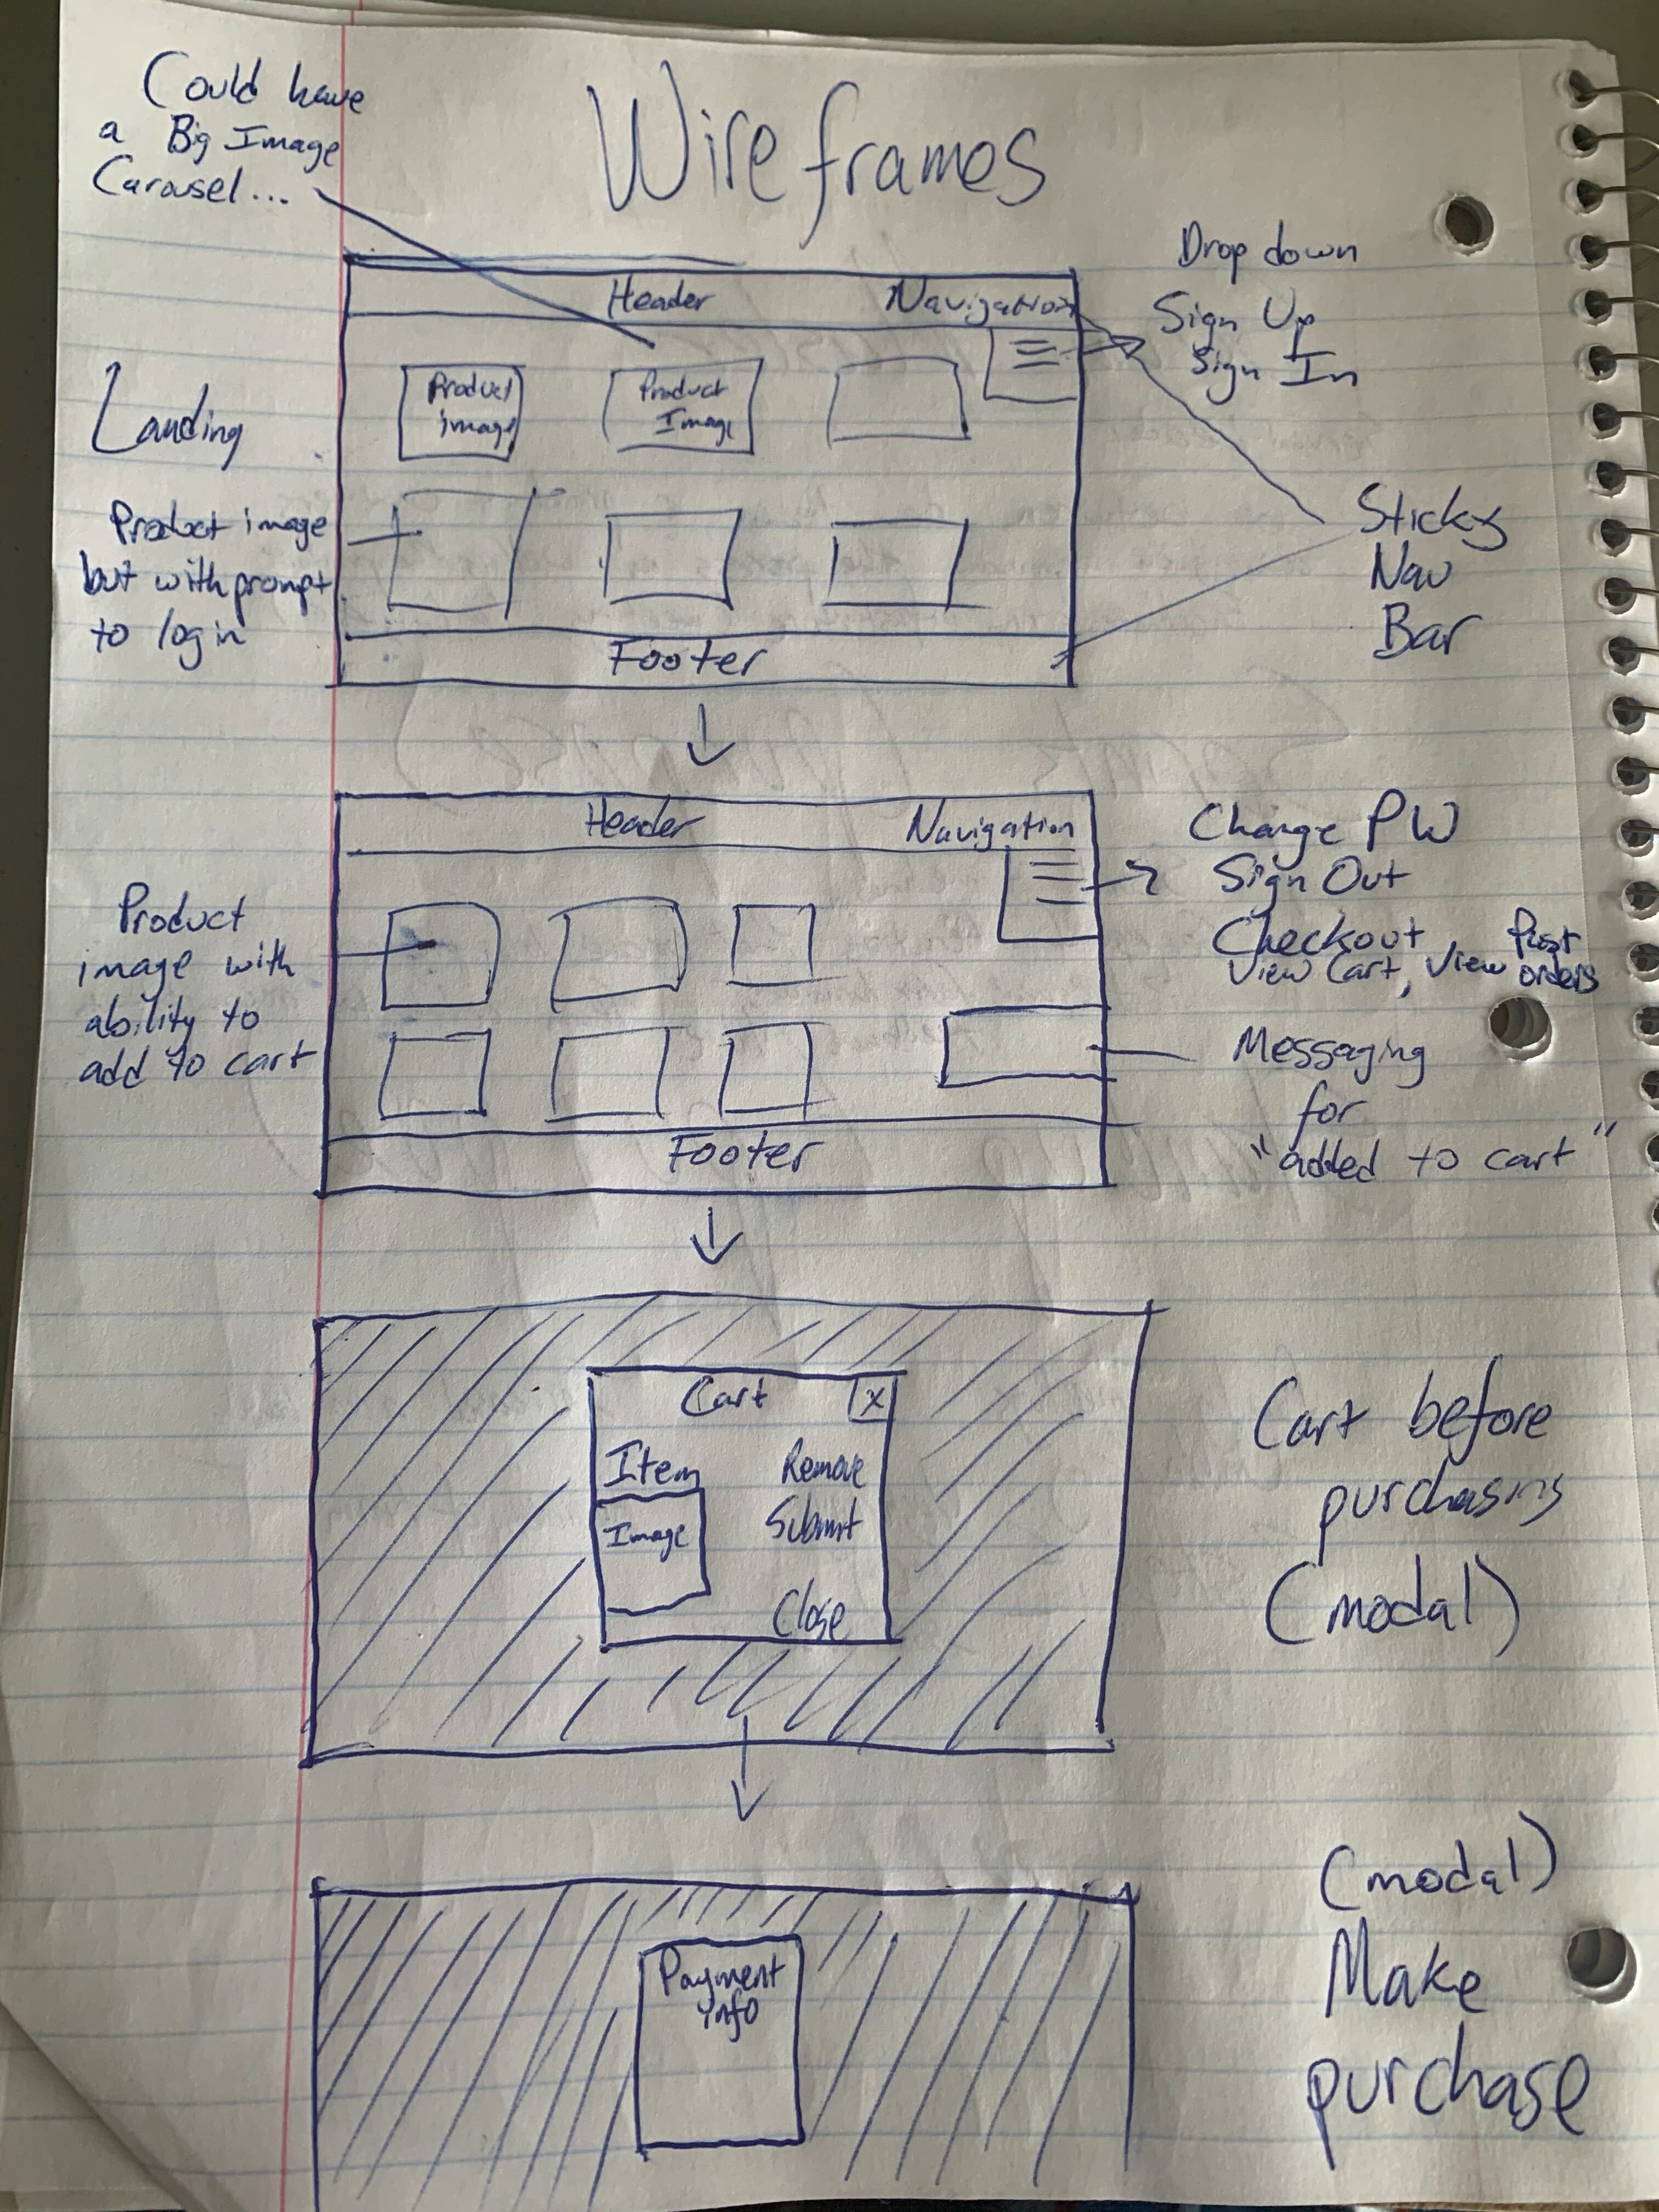 Could have
a Big Image
Carousel...
Wireframes
Header Navigation
Drop down
Sign Up
Sign In
Landing
Product
image
Product
Image
Product image
but with prompt
to login
Sticky
Nav
Bar
Footer
Header Navigation
Change PW
Sign Out
Checkout
View Cart, View Past
orders
Product
image with
ability to
add to cart
Messaging
for
"added to cart"
Footer
Cart X
Item Remove
Image Submit
Close
Cart before
purchasing
(modal)
Payment
info
(modal)
Make
purchase